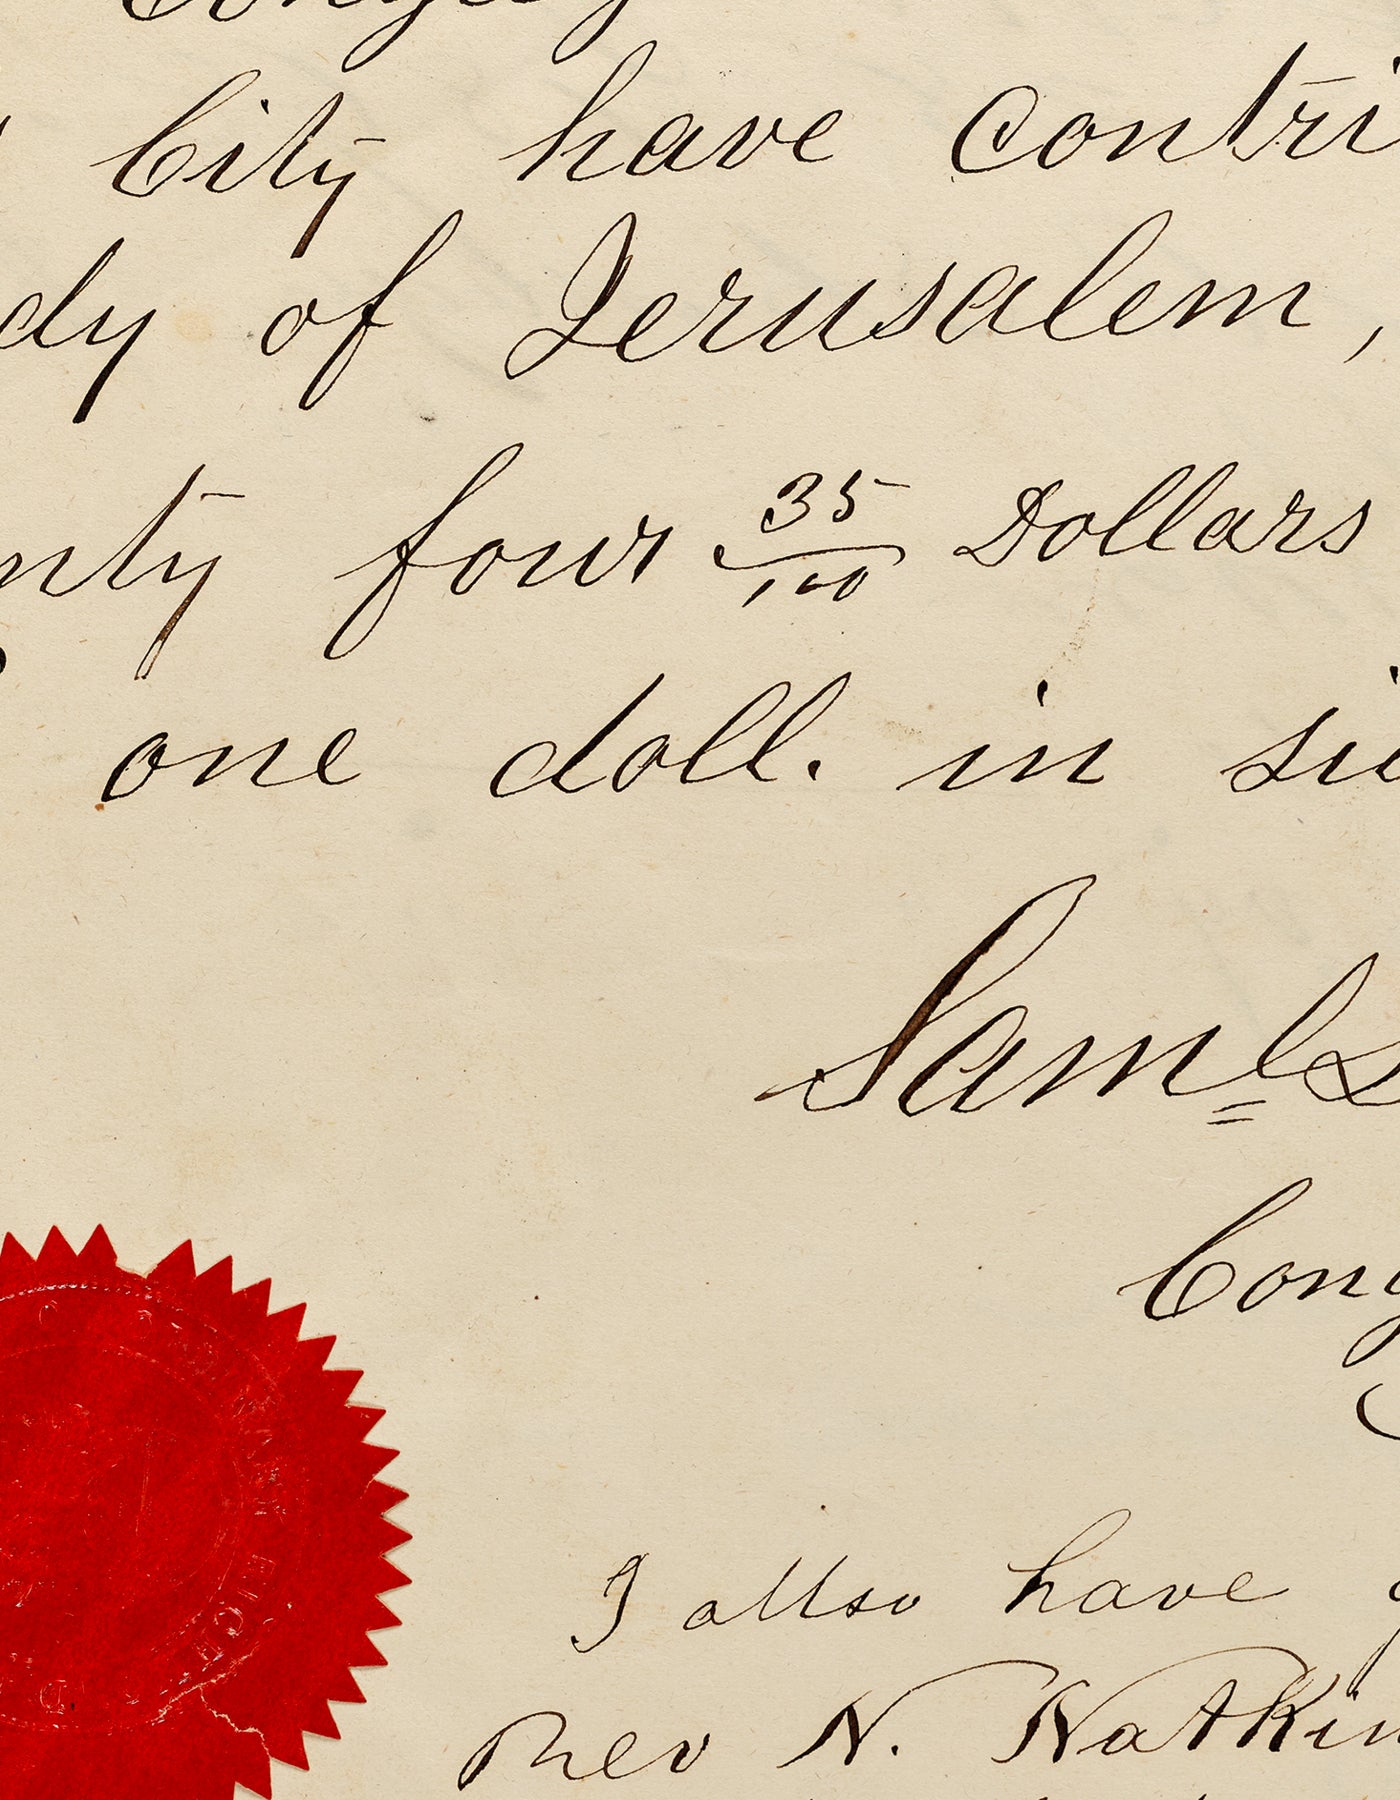 City have contri
dy of Jerusalem,
nty four 35/100 Dollars
one doll. in
Saml
Cong
I allso have
Rev N. Natkin